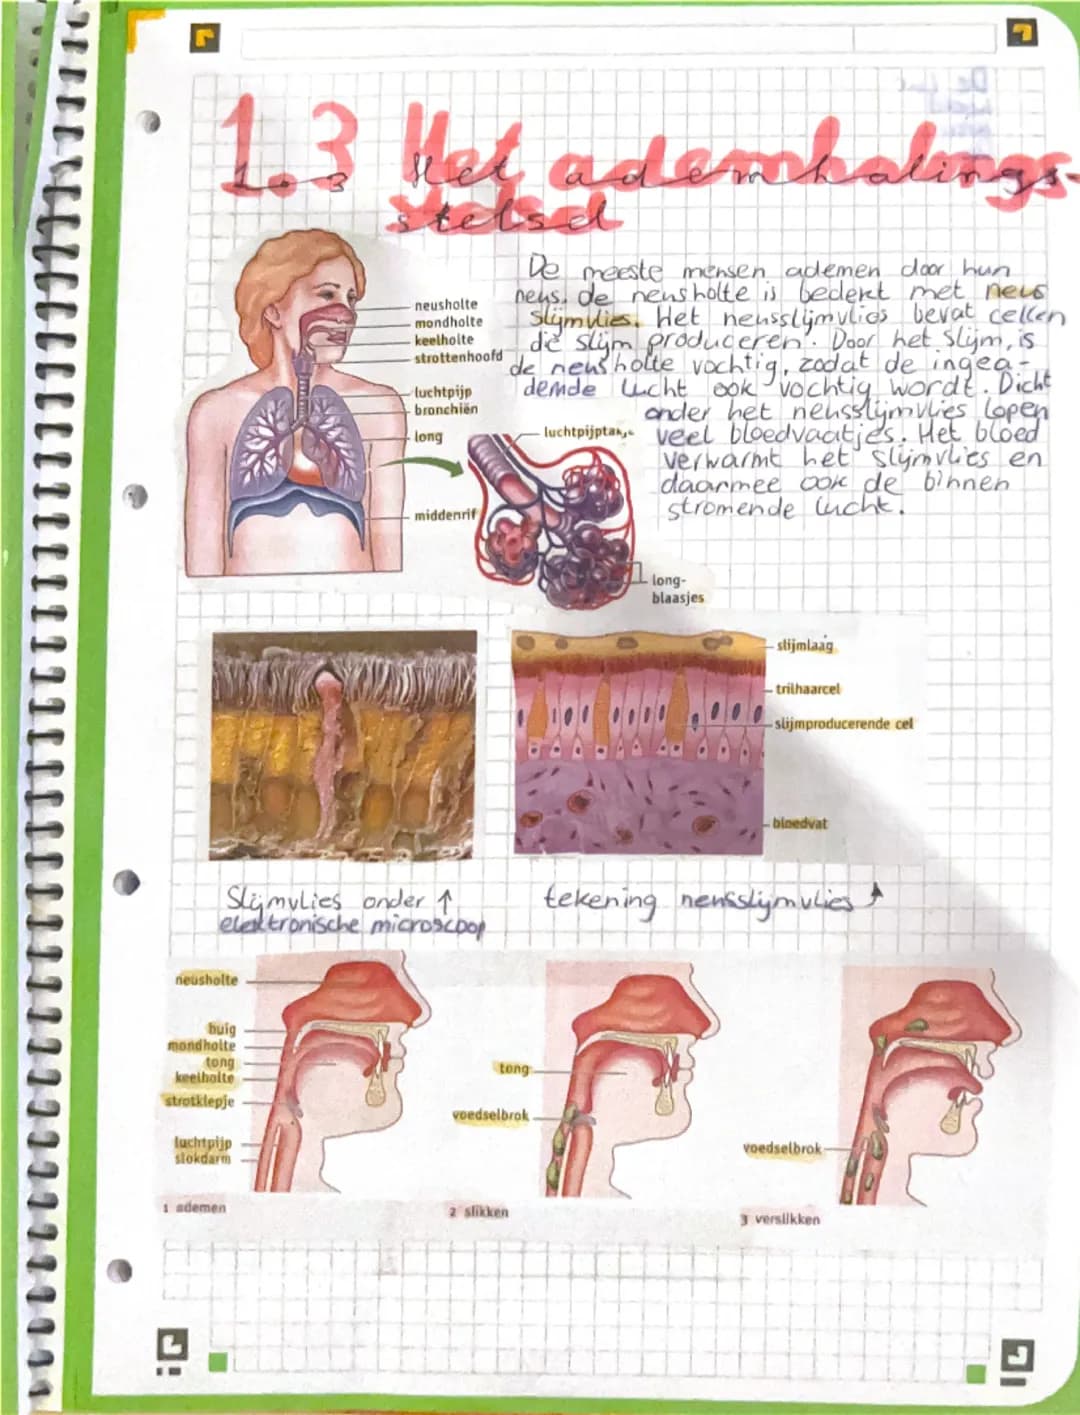 1.3 Het ademhalings-
stelsel
De meeste mensen ademen door hun
neus. de neusholte is bedekt met neus
slijmvlies. Het neusslijmvlies bevat cellen
die slijm produceren. Door het slijm, is
de neusholte vochtig, zodat de ingea-
demde lucht ook vochtig wordt. Dicht
onder het neusslijmvlies lopen
veel bloedvaatjes. Het bloed
verwarmt het slijmvlies en
daarmee ook de binnen
stromende lucht.
neusholte
mondholte
keelholte
strottenhoofd
luchtpijp
bronchiën
long
middenrif
long-
blaasjes
slijmlaag
trilhaarcel
slijmproducerende cel
bloedvat
Slijmvlies onder ↑
elektronische microscoop
tekening neusslijmvlies ↑
neusholte
huig
mondholte
tong
keelholte
strotklepje
luchtpijp
slokdarm
1 ademen
tong
voedselbrok
2 slikken
voedselbrok
3 verslikken